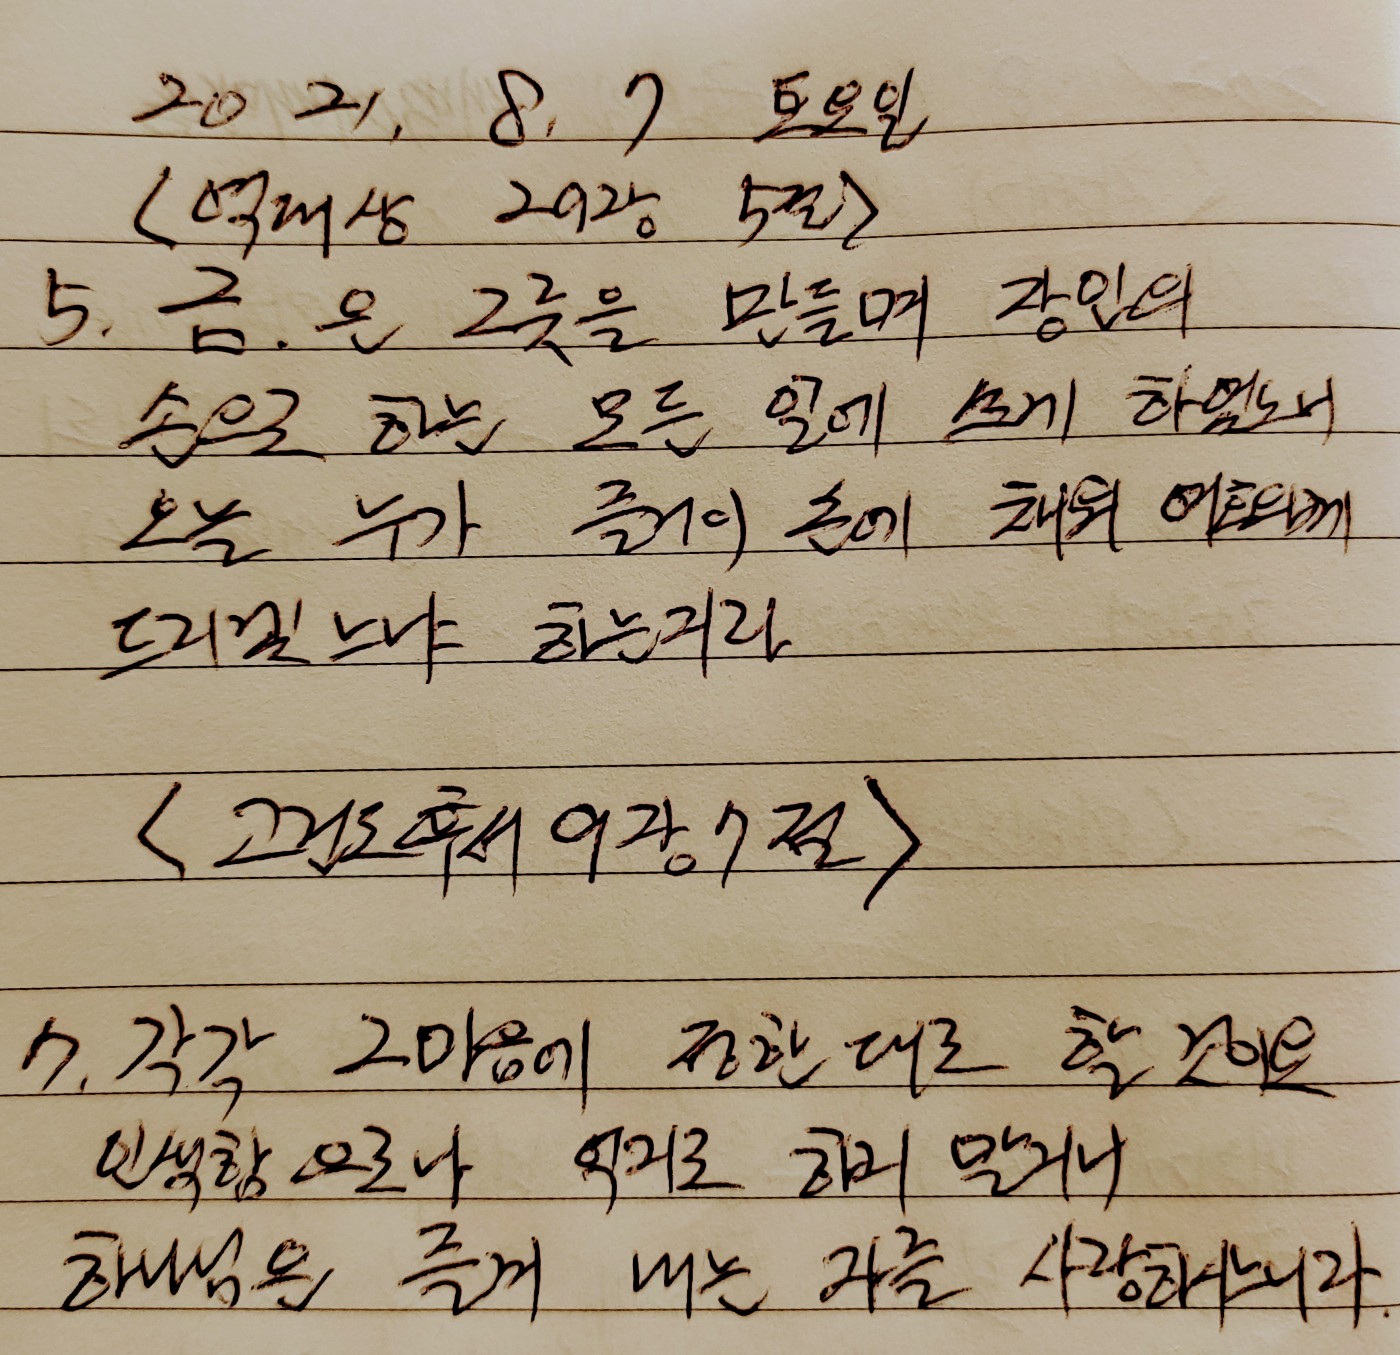 2021. 8. 7 토요일
<역대상 29장 5절>
5. 금.은 그릇을 만들며 장인의
손으로 하는 모든 일에 쓰게 하였노니
오늘 누가 즐거이 손에 채워 여호와께
드리겠느냐 하는지라
<고린도후서 9장 7절>
7. 각각 그마음에 정한대로 할 것이요
인색함으로나 억지로 하지 말지니
하나님은 즐겨 내는 자를 사랑하시느니라.